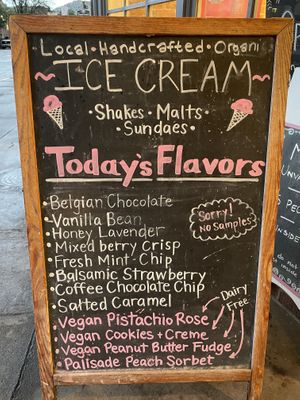 Local • Handcrafted • Organi
~ ICE CREAM ~
• Shakes • Malts •
Sundaes •
Today's Flavors
• Belgian Chocolate
• Vanilla Bean
• Honey Lavender
• Mixed berry Crisp
• Fresh Mint-Chip
• Balsamic Strawberry
• Coffee Chocolate Chip
• Salted Caramel
Sorry!
No Samples
Dairy
Free
• Vegan Pistachio Rose
• Vegan Cookies + Creme
• Vegan Peanut Butter Fudge
• Palisade Peach Sorbet